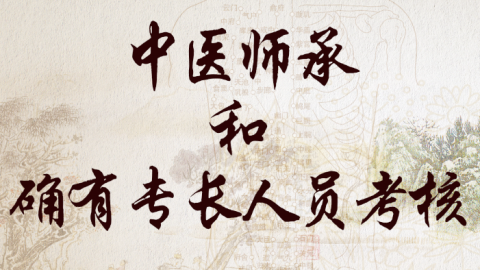 中医师承
和
确有专长人员考核